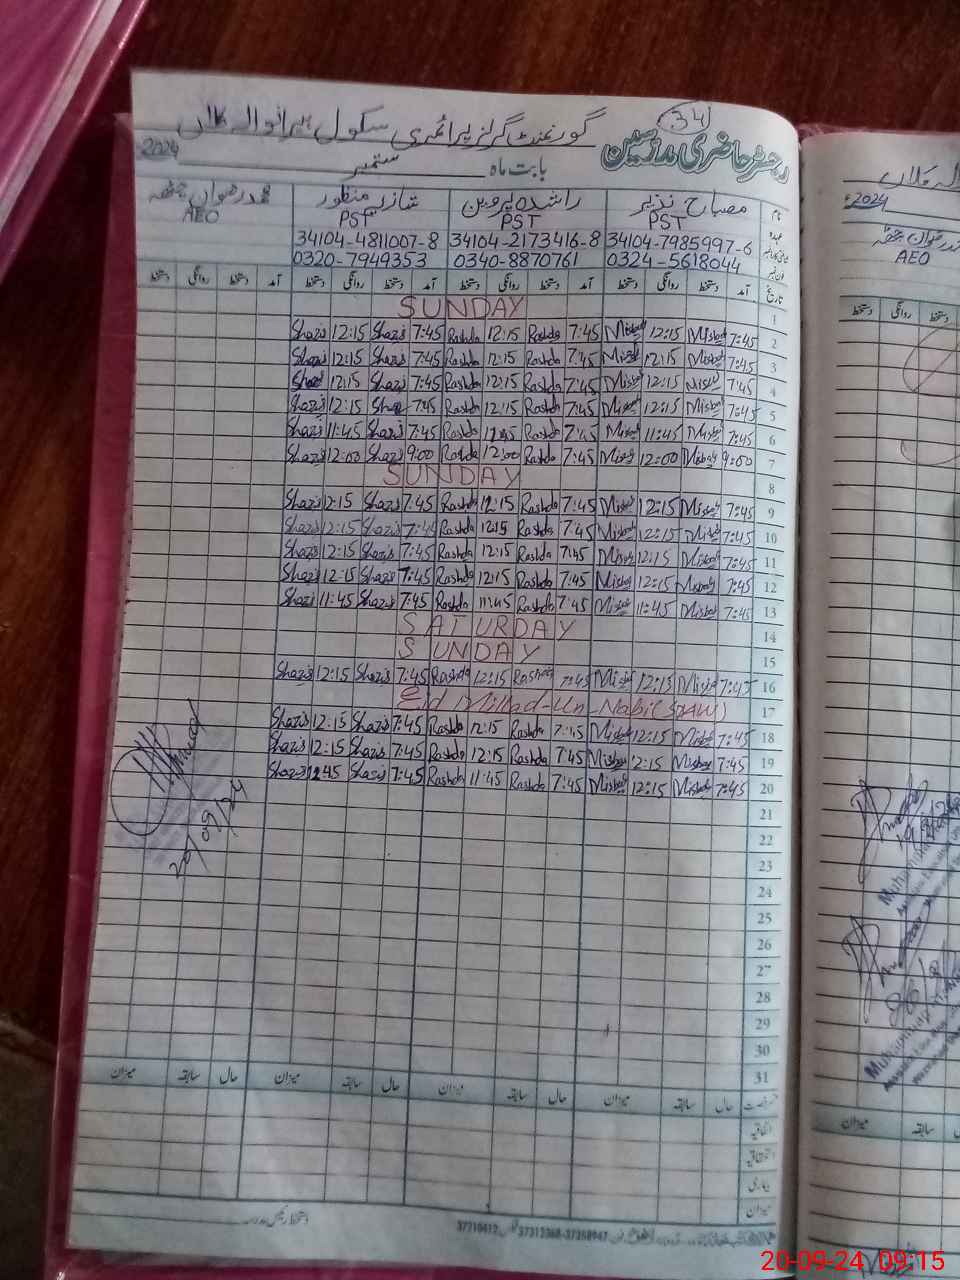 34
رجسٹر حاضری مدرسین گورنمنٹ گرلز پرائمری سکول
بابت ماہ ستمبر 2024
نام مصباح نذیر راشدہ پروین شازیہ منظور محمد رضوان چٹھہ
عہدہ PST PST PST AEO
34104-7985997-6 34104-2173416-8 34104-4811007-8
0324-5618044 0340-8870761 0320-7949353
تاریخ آمد دستخط روانگی دستخط آمد دستخط روانگی دستخط آمد دستخط روانگی دستخط آمد دستخط روانگی دستخط
1 SUNDAY
2 7:45 Misbah 12:15 Misbah 7:45 Rashda 12:15 Rashda 7:45 Shazia 12:15 Shazia
3 7:45 Misbah 12:15 Misbah 7:45 Rashda 12:15 Rashda 7:45 Shazia 12:15 Shazia
4 7:45 Misbah 12:15 Misbah 7:45 Rashda 12:15 Rashda 7:45 Shazia 12:15 Shazia
5 7:45 Misbah 12:15 Misbah 7:45 Rashda 12:15 Rashda 7:45 Shazia 12:15 Shazia
6 7:45 Misbah 11:45 Misbah 7:45 Rashda 11:45 Rashda 7:45 Shazia 11:45 Shazia
7 9:00 Misbah 12:00 Misbah 7:45 Rashda 12:00 Rashda 9:00 Shazia 12:00 Shazia
8 SUNDAY
9 7:45 Misbah 12:15 Misbah 7:45 Rashda 12:15 Rashda 7:45 Shazia 12:15 Shazia
10 7:45 Misbah 12:15 Misbah 7:45 Rashda 12:15 Rashda 7:45 Shazia 12:15 Shazia
11 7:45 Misbah 12:15 Misbah 7:45 Rashda 12:15 Rashda 7:45 Shazia 12:15 Shazia
12 7:45 Misbah 12:15 Misbah 7:45 Rashda 12:15 Rashda 7:45 Shazia 12:15 Shazia
13 7:45 Misbah 11:45 Misbah 7:45 Rashda 11:45 Rashda 7:45 Shazia 11:45 Shazia
14 SATURDAY
15 SUNDAY
16 7:45 Misbah 12:15 Misbah 7:45 Rashda 12:15 Rashda 7:45 Shazia 12:15 Shazia
17 Eid Millad-Un-Nabi(SAW)
18 7:45 Misbah 12:15 Misbah 7:45 Rashda 12:15 Rashda 7:45 Shazia 12:15 Shazia
19 7:45 Misbah 12:15 Misbah 7:45 Rashda 12:15 Rashda 7:45 Shazia 12:15 Shazia
20 7:45 Misbah 12:15 Misbah 7:45 Rashda 11:45 Rashda 7:45 Shazia 11:45 Shazia
20/09/24
21
22
23
24
25
26
27
28
29
30
31
حال سابقہ میزان حال سابقہ میزان حال سابقہ میزان حال سابقہ میزان
اتفاقیہ
بیماری
میزان
37310412 37313368-37358947
2024
AEO
دستخط روانگی دستخط
میزان سابقہ
20-09-24 09:15